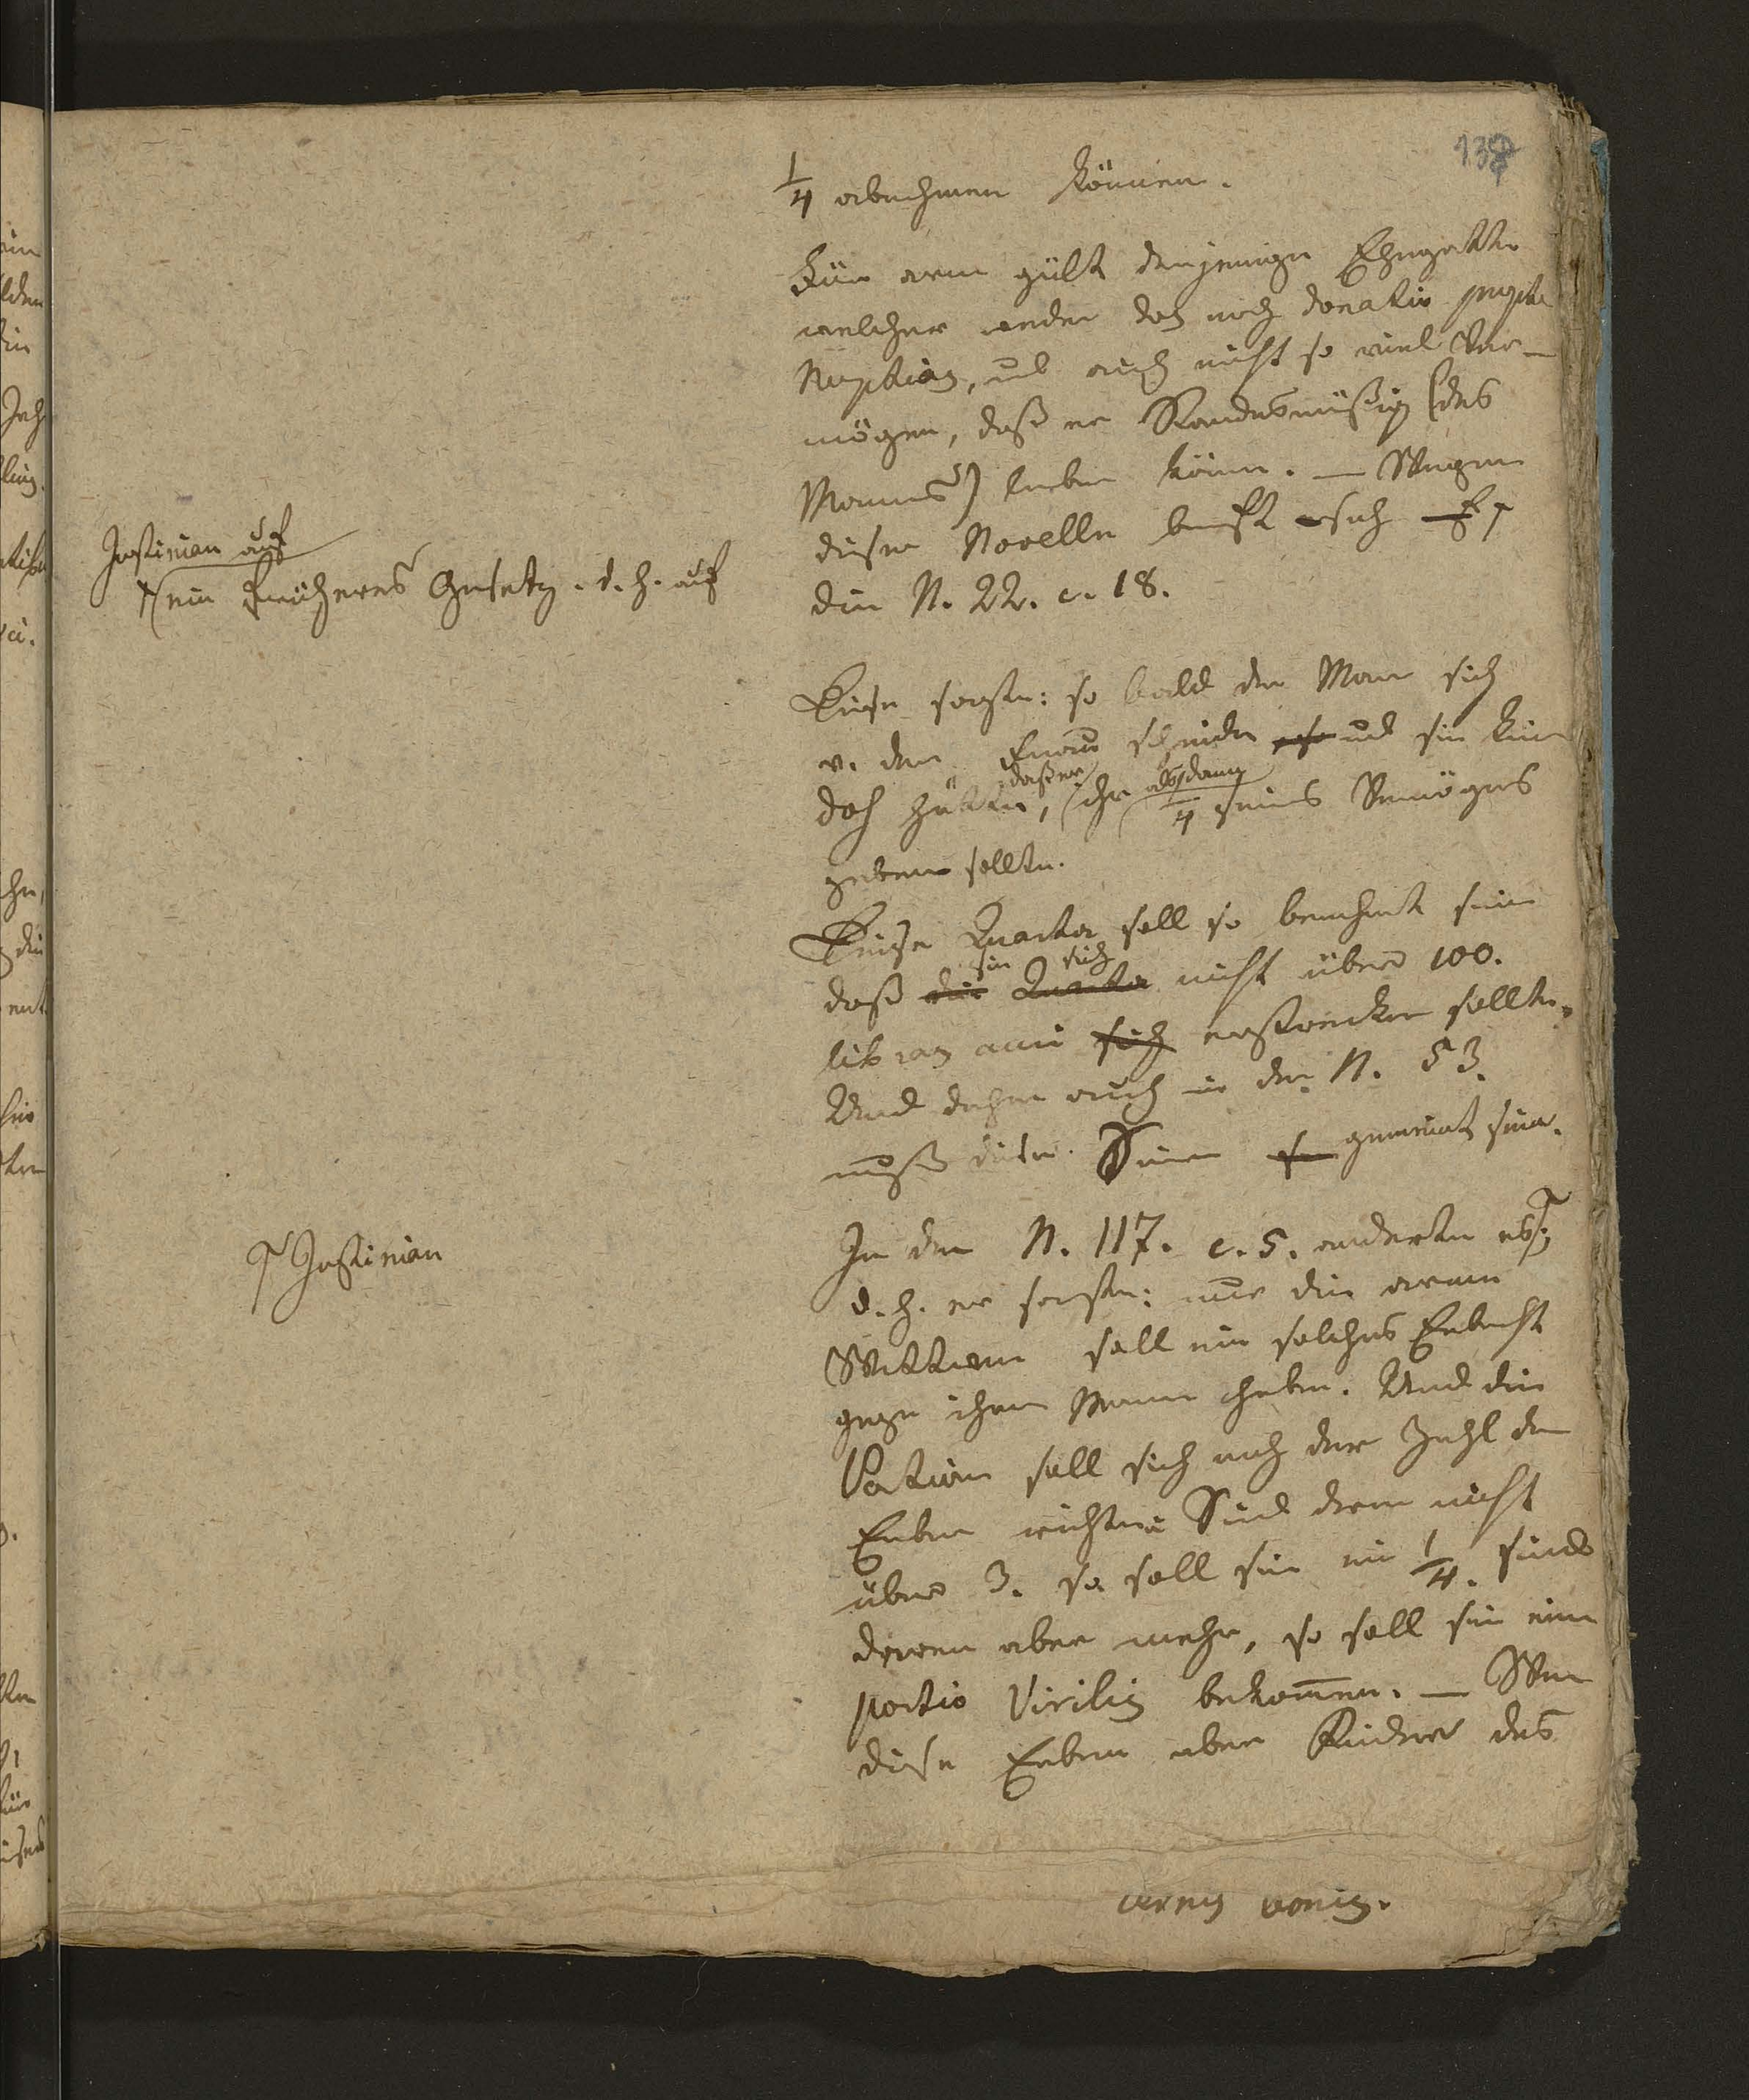 138
1/4 abnehmen können.
Für arm gült denjenigen Ehegatte
welcher weder dos noch donatio propter
Nuptias, und auch nicht so viel Ver-
mögen, daß er Standesmäßig (des
Mannes) leben könne. — Wegen
dieser Novelle beruft sich
Justinian auf
ein früheres Gesetz. d. h. auf
die N. 22. c. 18.
Diese sagte: so bald der Mann sich
v. der Frau scheide und sie kein
dos hätte, daß er ihr alsdann 1/4 seines Vermögens
geben sollte.
Diese Quarta soll so berechnet sein
daß sie sich nicht über 100.
libras auri sich erstrecken sollte.
Und daher auch in der N. 53.
muß dieser Sinn gemeint sein.
Justinian
In der N. 117. c. 5. änderte es
d. h. er sagte: nur die arme
Wittwe soll ein solches Erbrecht
gegen ihren Mann haben. Und die
Portion soll sich nach der Zahl der
Erben richten. Sind deren nicht
über 3. so soll sie ein 1/4. sind
deren aber mehr, so soll sie eine
portio Virilis bekommen. — Wenn
diese Erben aber Kinder des